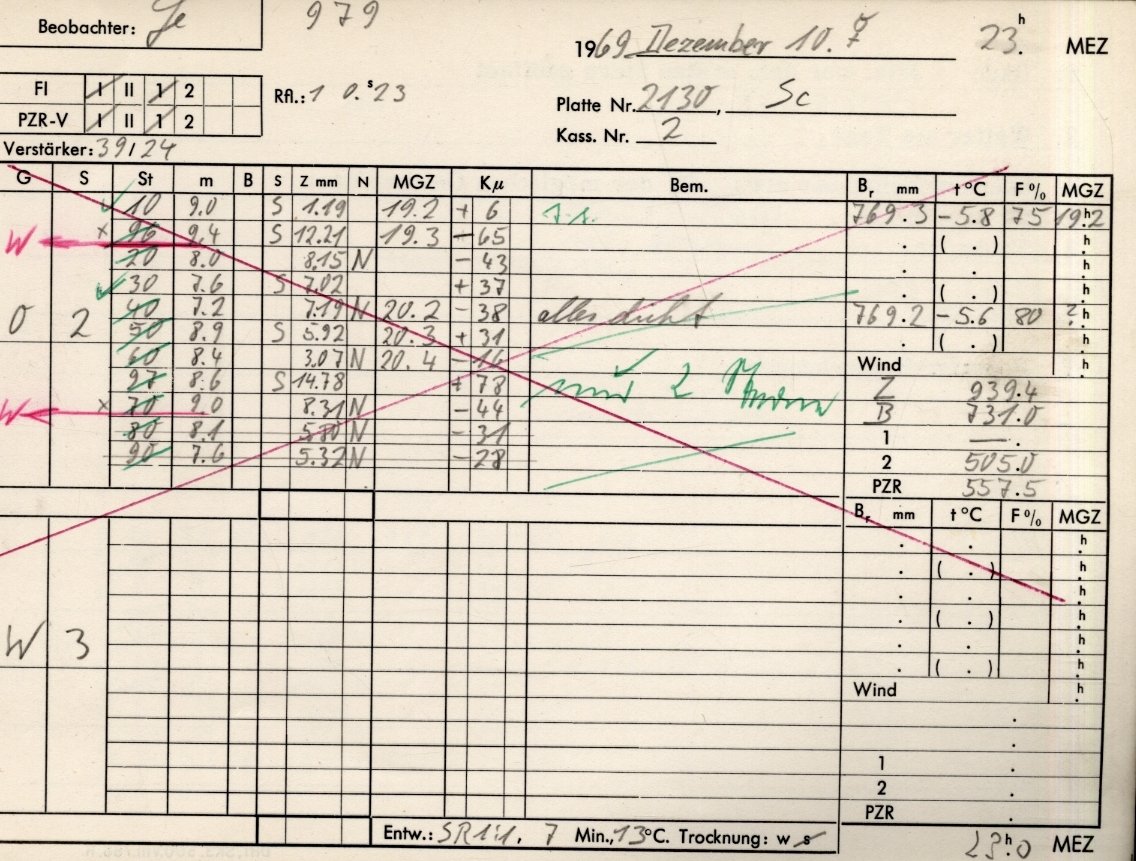 Beobachter: Je 979
1969 Dezember 10. 23.h MEZ
FI I II 1 2 Rfl.: 1 0.s23
PZR-V I II 1 2 Platte Nr. 2130, Sc
Kass. Nr. 2
Verstärker: 39/24
G S St m B S Z mm N MGZ Kμ Bem. Br mm t°C F% MGZ
10 9.0 S 1.19 19.2 + 6 769.3 -5.8 75 19h2
W x 96 9.4 S 12.21 19.3 - 65 . ( . ) h
20 8.0 8.15 N - 43 . . h
30 7.6 S 7.02 + 37 . ( . ) h
O 2 40 7.2 7.19 N 20.2 - 38 alles dicht 769.2 -5.6 80 ?.h
50 8.9 S 5.92 20.3 + 31 . ( . ) h
60 8.4 3.07 N 20.4 - 16 Wind h
97 8.6 S 14.78 + 78 Z 939.4
W x 70 9.0 8.31 N - 44 nur 2 B 731.0
80 8.1 5.80 N - 31 1 — .
90 7.6 5.32 N - 28 2 505.0
PZR 557.5
Br mm t°C F% MGZ
. . h
. ( . ) h
. . h
. ( . ) h
W 3 . . h
. ( . ) h
Wind h
.
.
1 .
2 .
PZR .
Entw.: SR 1:1. 7 Min., 13°C. Trocknung: w s
23h.0 MEZ